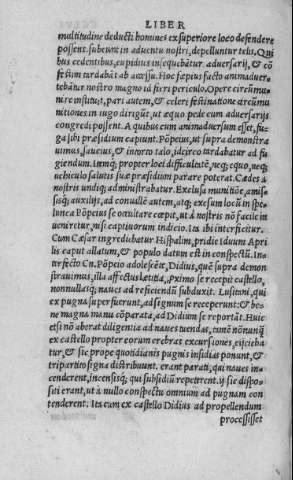 LIBER
multitudine deducti homines ex superiore loco defendere
possent. subeunt in aduentu nostri, depelluntur telis. Qui
bus cedentibus, cupidius insequuntur aduersarij, & cō
festim tardabāt ab accessu. Hoc sæpius facto animaduer
tebāt in nostro magno id fieri periculo. Opere circūmu
nire instituit, pari autem, & celeri festinatione circūmu
nitiones in iugo dirigūt, ut æquo pede cum aduersarijs
congredi possent. A quibus cum animaduersum esset, fu
ga sibi præsidium capiunt. Pōpeius, ut supra demonstra
uimus, saucius, & intorto talo, idcirco tardabatur ad fu
giendum. Itemq; propter loci difficultatē, neq; equo, neq;
uehiculo salutis suæ præsidium parare poterat. Cædes à
nostris undiq; administrabatur. Exclusa munitiōe, amis=
sisq; auxilijs, ad conuallē autem, atq; exesum locū in spe=
lunca Pōpeius se occultare cœpit, ut à nostris nō facile in
ueniretur, nisi captiuorum indicio. Ita ibi interficitur.
Cum Cæsar ingrediebatur Hispalim, pridie Iduum Apri
lis caput allatum, & populo datum est in conspectū. In=
terfecto Cn. Pōpeio adolescēte, Didius, quē supra demon
strauimus, illa affectus lætitia, pximo se recepit castello,
nonnullasq; naues ad reficiendū subduxit. Lusitani, qui
ex pugna superfuerunt, ad signum se receperunt: & be=
ne magna manu cōparata, ad Didium se reportāt. Huic
etsi nō aberat diligentia ad naues tuendas, tamē nōnunq̄
ex castello propter eorum crebras excursiones, eijcieba
tur, & sic prope quotidianis pugnis insidias ponunt, &
tripartito signa distribuunt. erant parati, qui naues in=
cenderent, incensisq; qui subsidiū repeterent. ij sic dispo=
siti erant, ut à nullo conspectu omnium ad pugnam con
tenderent. Ita cum ex castello Didius ad propellendum
processisset